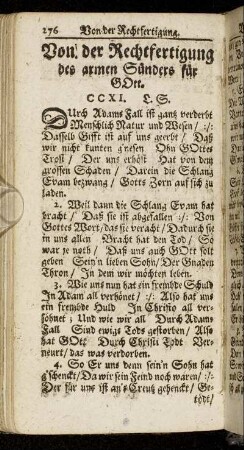 276 Von der Rechtfertigung.
Von der Rechtfertigung
des armen Sünders für
GOtt.
CCXI. L. S.
DUrch Adams Fall ist gantz verderbt
Menschlich Natur und Wesen / :/:
Dasselb Gifft ist auf uns geerbt / Daß
wir nicht kunten g'nesen Ohn GOttes
Trost / Der uns erlöst Hat von dem
grossen Schaden / Darein die Schlang
Evam bezwang / Gotts Zorn auf sich zu
laden.
2. Weil dann die Schlang Evam hat
bracht / Daß sie ist abgefallen :/: Von
Gottes Wort / das sie veracht / Dadurch sie
in uns allen Bracht hat den Tod / So
war je noth / Daß uns auch GOtt solt
geben Sein'n lieben Sohn / Der Gnaden
Thron / In dem wir möchten leben.
3. Wie uns nun hat ein frembde Schuld
In Adam all verhönet / :/: Also hat uns
ein frembde Huld In Christo all ver-
söhnet ; Und wie wir all Durch Adams
Fall Sind ewigs Tods gestorben / Also
hat GOtt Durch Christi Todt Ver-
neurt / das was verdorben.
4. So Er uns denn sein'n Sohn hat
g'schenckt / Da wir sein Feind noch waren / :/:
Der für uns ist an's Creutz gehenckt / Ge-
tödt /